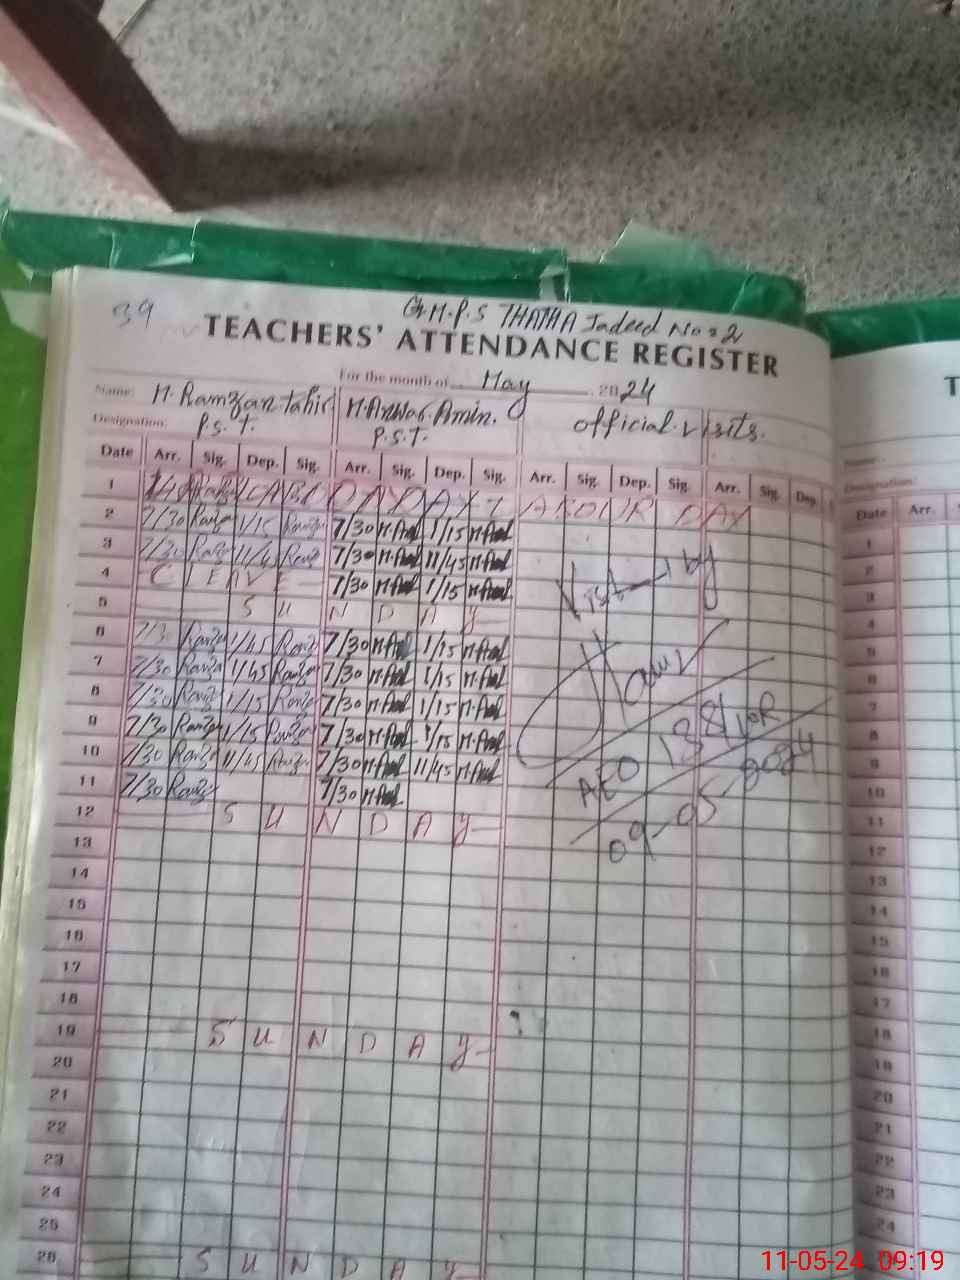 39
G.M.P.S THATHA Jadeed No=2
TEACHERS' ATTENDANCE REGISTER
For the month of May 2024
Name: M. Ramzan Tahir M. Anwar Amin. official visits.
Designation: P.S.T. P.S.T.
Date Arr. Sig. Dep. Sig. Arr. Sig. Dep. Sig. Arr. Sig. Dep. Sig. Arr. Sig. Dep.
1 DAY LABOUR DAY
2 7/30 1/15 7/30 1/15
3 7/30 11/45 7/30 11/45
4 C LEAVE 7/30 1/15
5 SUNDAY
6 7/30 1/45 7/30 1/15
7 7/30 1/45 7/30 1/15
8 7/30 1/15 7/30 1/15
9 7/30 1/15 7/30 1/15
10 7/30 11/45 7/30 11/45
11 7/30 7/30
12 SUNDAY
13
14
15
16
17
18
19 SUNDAY
20
21
22
23
24
25
26 SUNDAY
Visit by
AEO 138/10R
09-05-2024
T
Name:
Designation:
Date Arr.
1
2
3
4
5
6
7
8
9
10
11
12
13
14
15
16
17
18
19
20
21
22
23
24
11-05-24 09:19